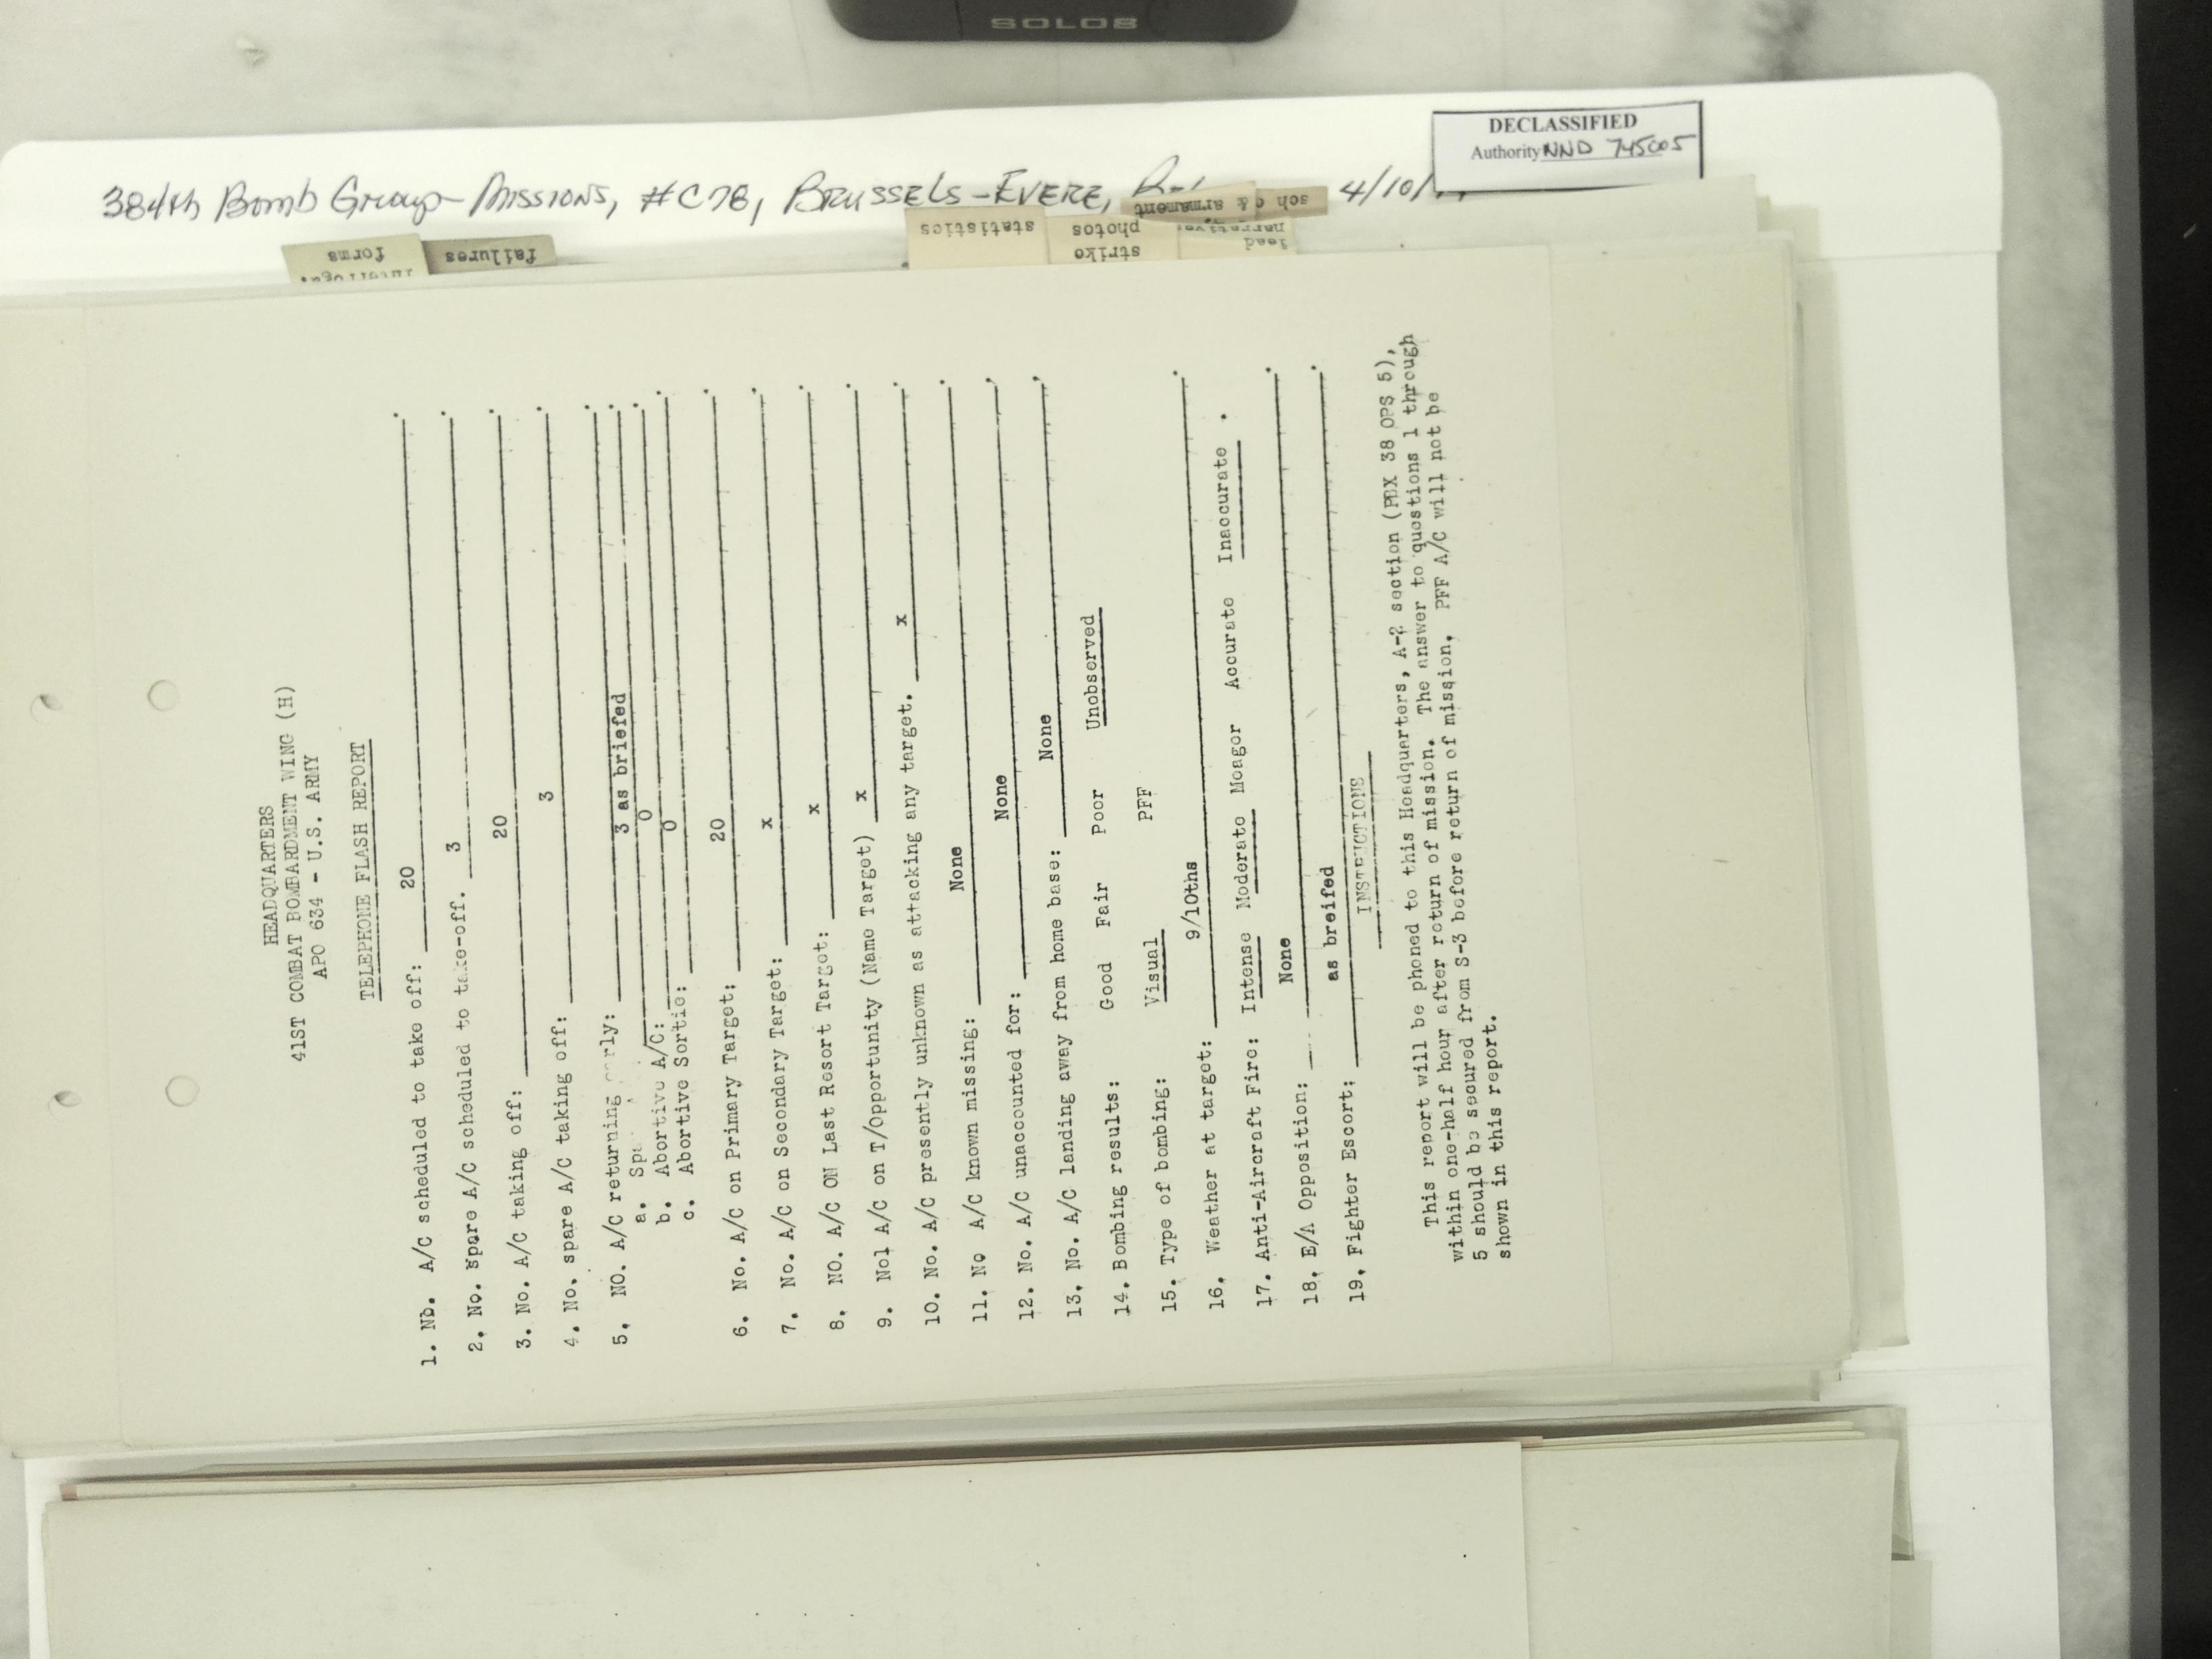 SOLOS
DECLASSIFIED
Authority NND 745005
384th Bomb Group-Missions, #C78, Brussels-Evere, 4/10/
forms
failures
statistics
strike
photos
lead
& armament
sch
HEADQUARTERS
41ST COMBAT BOMBARDMENT WING (H)
APO 634 - U.S. ARMY
TELEPHONE FLASH REPORT
1. Nb. A/C scheduled to take off: 20 .
2. No. Spare A/C scheduled to take-off. 3 .
3. No. A/C taking off: 20 .
4. No. spare A/C taking off: 3 .
5. NO. A/C returning early: .
a. 3 as briefed .
b. Abortive A/C: 0 .
c. Abortive Sortie: 0 .
6. No. A/C on Primary Target: 20 .
7. No. A/C on Secondary Target: x .
8. NO. A/C ON Last Resort Target: x .
9. Nol A/C on T/Opportunity (Name Target) x .
10. No. A/C presently unknown as attacking any target. x .
11. No A/C known missing: None .
12. No. A/C unaccounted for: None .
13. No. A/C landing away from home base: None .
14. Bombing results: Good Fair Poor Unobserved
15. Type of bombing: Visual PFF
16. Weather at target: 9/10ths .
17. Anti-Aircraft Fire: Intense Moderate Meager Accurate Inaccurate .
18. E/A Opposition: None .
19. Fighter Escort: as breifed .
INSTRUCTIONS
This report will be phoned to this Headquarters, A-2 section (PBX 38 OPS 5),
within one-half hour after return of mission. The answer to questions 1 through
5 should be secured from S-3 before return of mission. PFF A/C will not be
shown in this report.